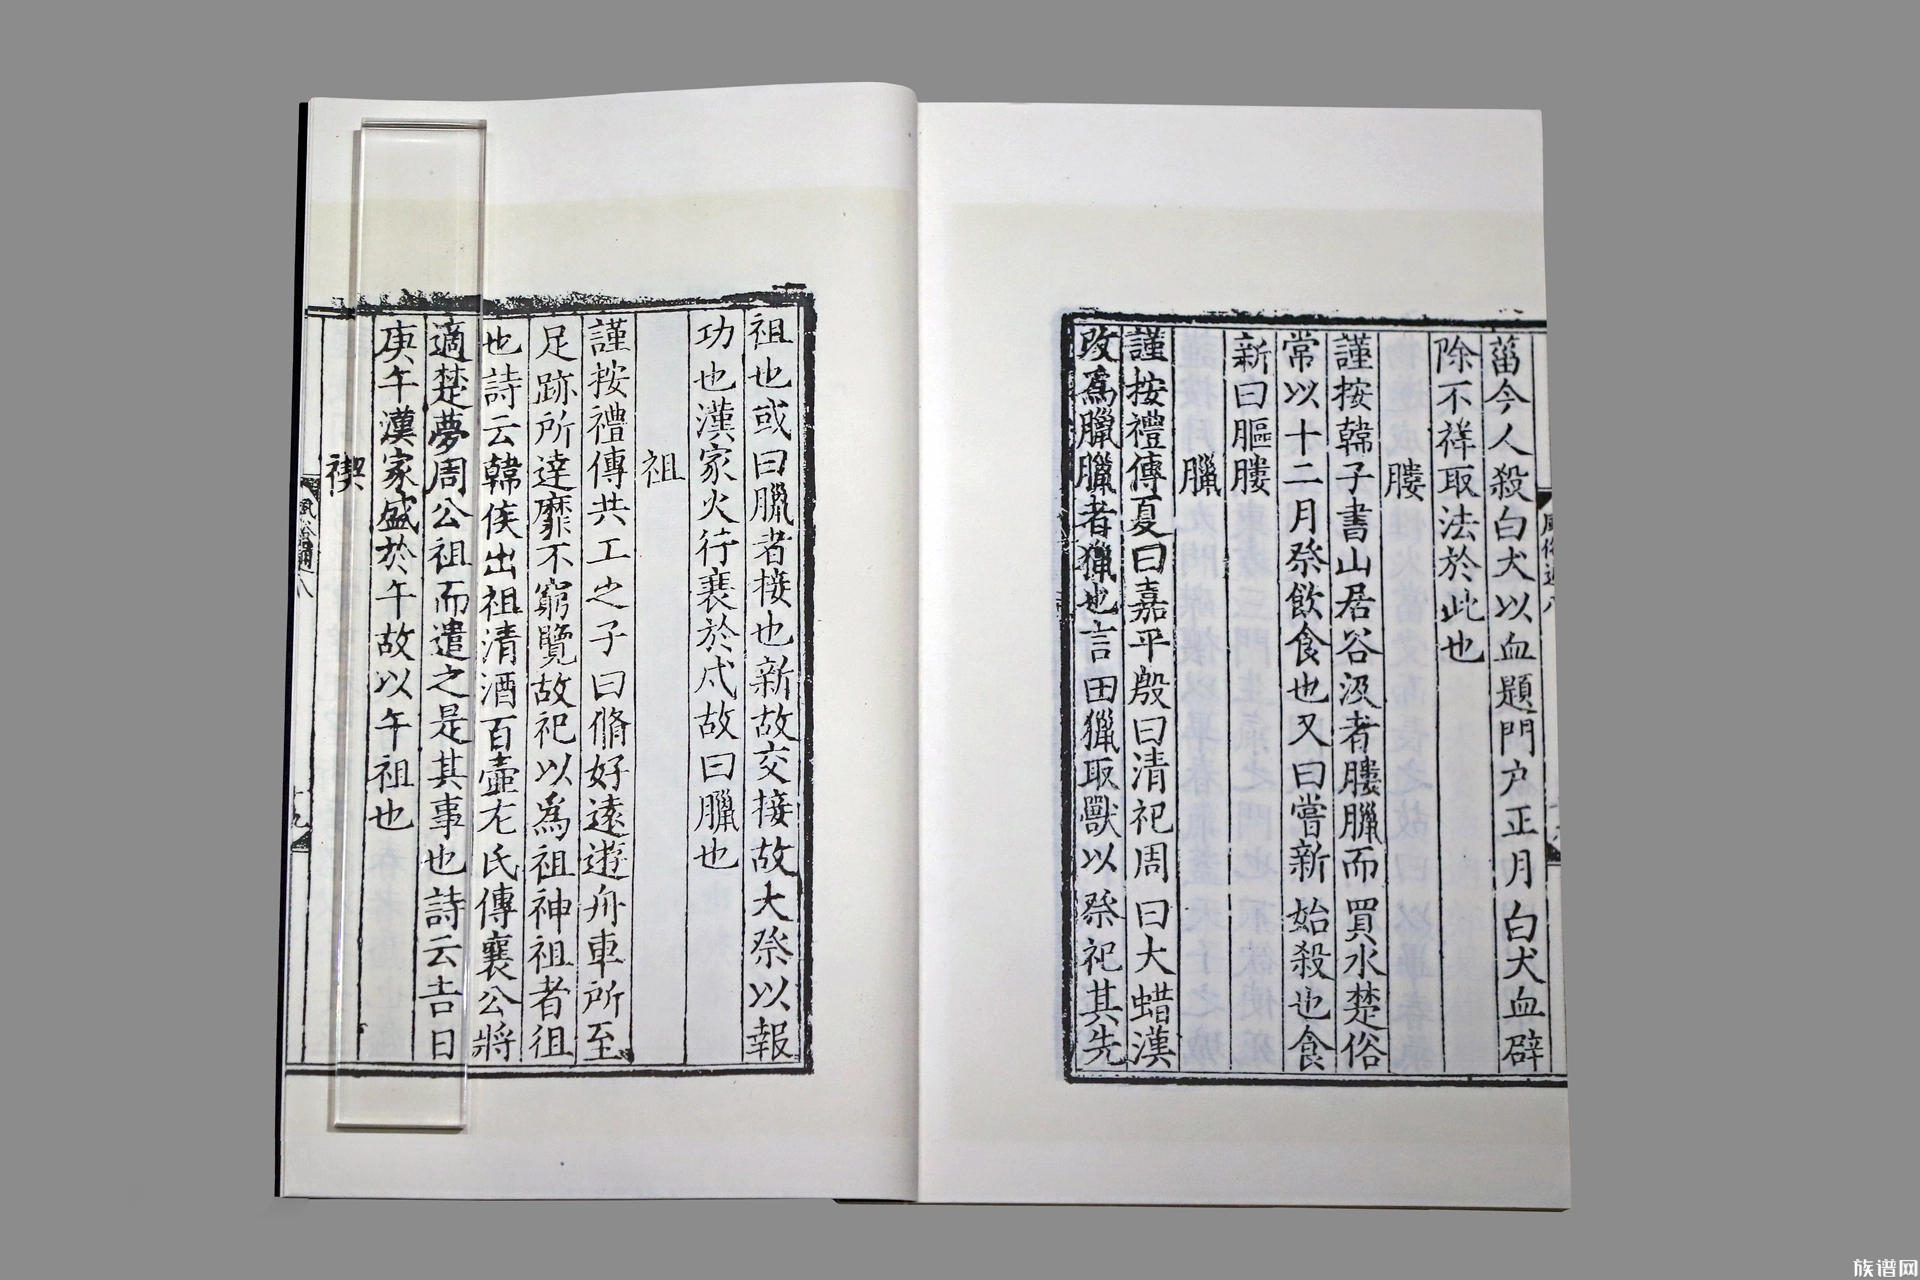 菑今人殺白犬以血題門户正月白犬血辟
除不祥取法於此也
膢
謹按韓子書山居谷汲者膢臘而買水楚俗
常以十二月祭飲食也又曰嘗新始殺也食
新曰䝙膢
臘
謹按禮傳夏曰嘉平殷曰清祀周曰大蜡漢
改爲臘臘者獵也言田獵取獸以祭祀其先
祖也或曰臘者接也新故交接故大祭以報
功也漢家火行衰於戌故曰臘也
祖
謹按禮傳共工之子曰脩好遠遊舟車所至
足跡所達靡不窮覽故祀以爲祖神祖者徂
也詩云韓侯出祖清酒百壺左氏傳襄公將
適楚夢周公祖而遣之是其事也詩云吉日
庚午漢家盛於午故以午祖也
禊
風俗通八
十九
族谱网